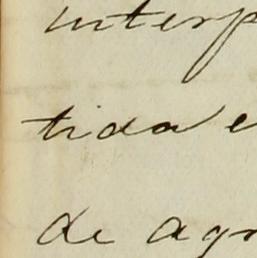 interp
tida e
de agr